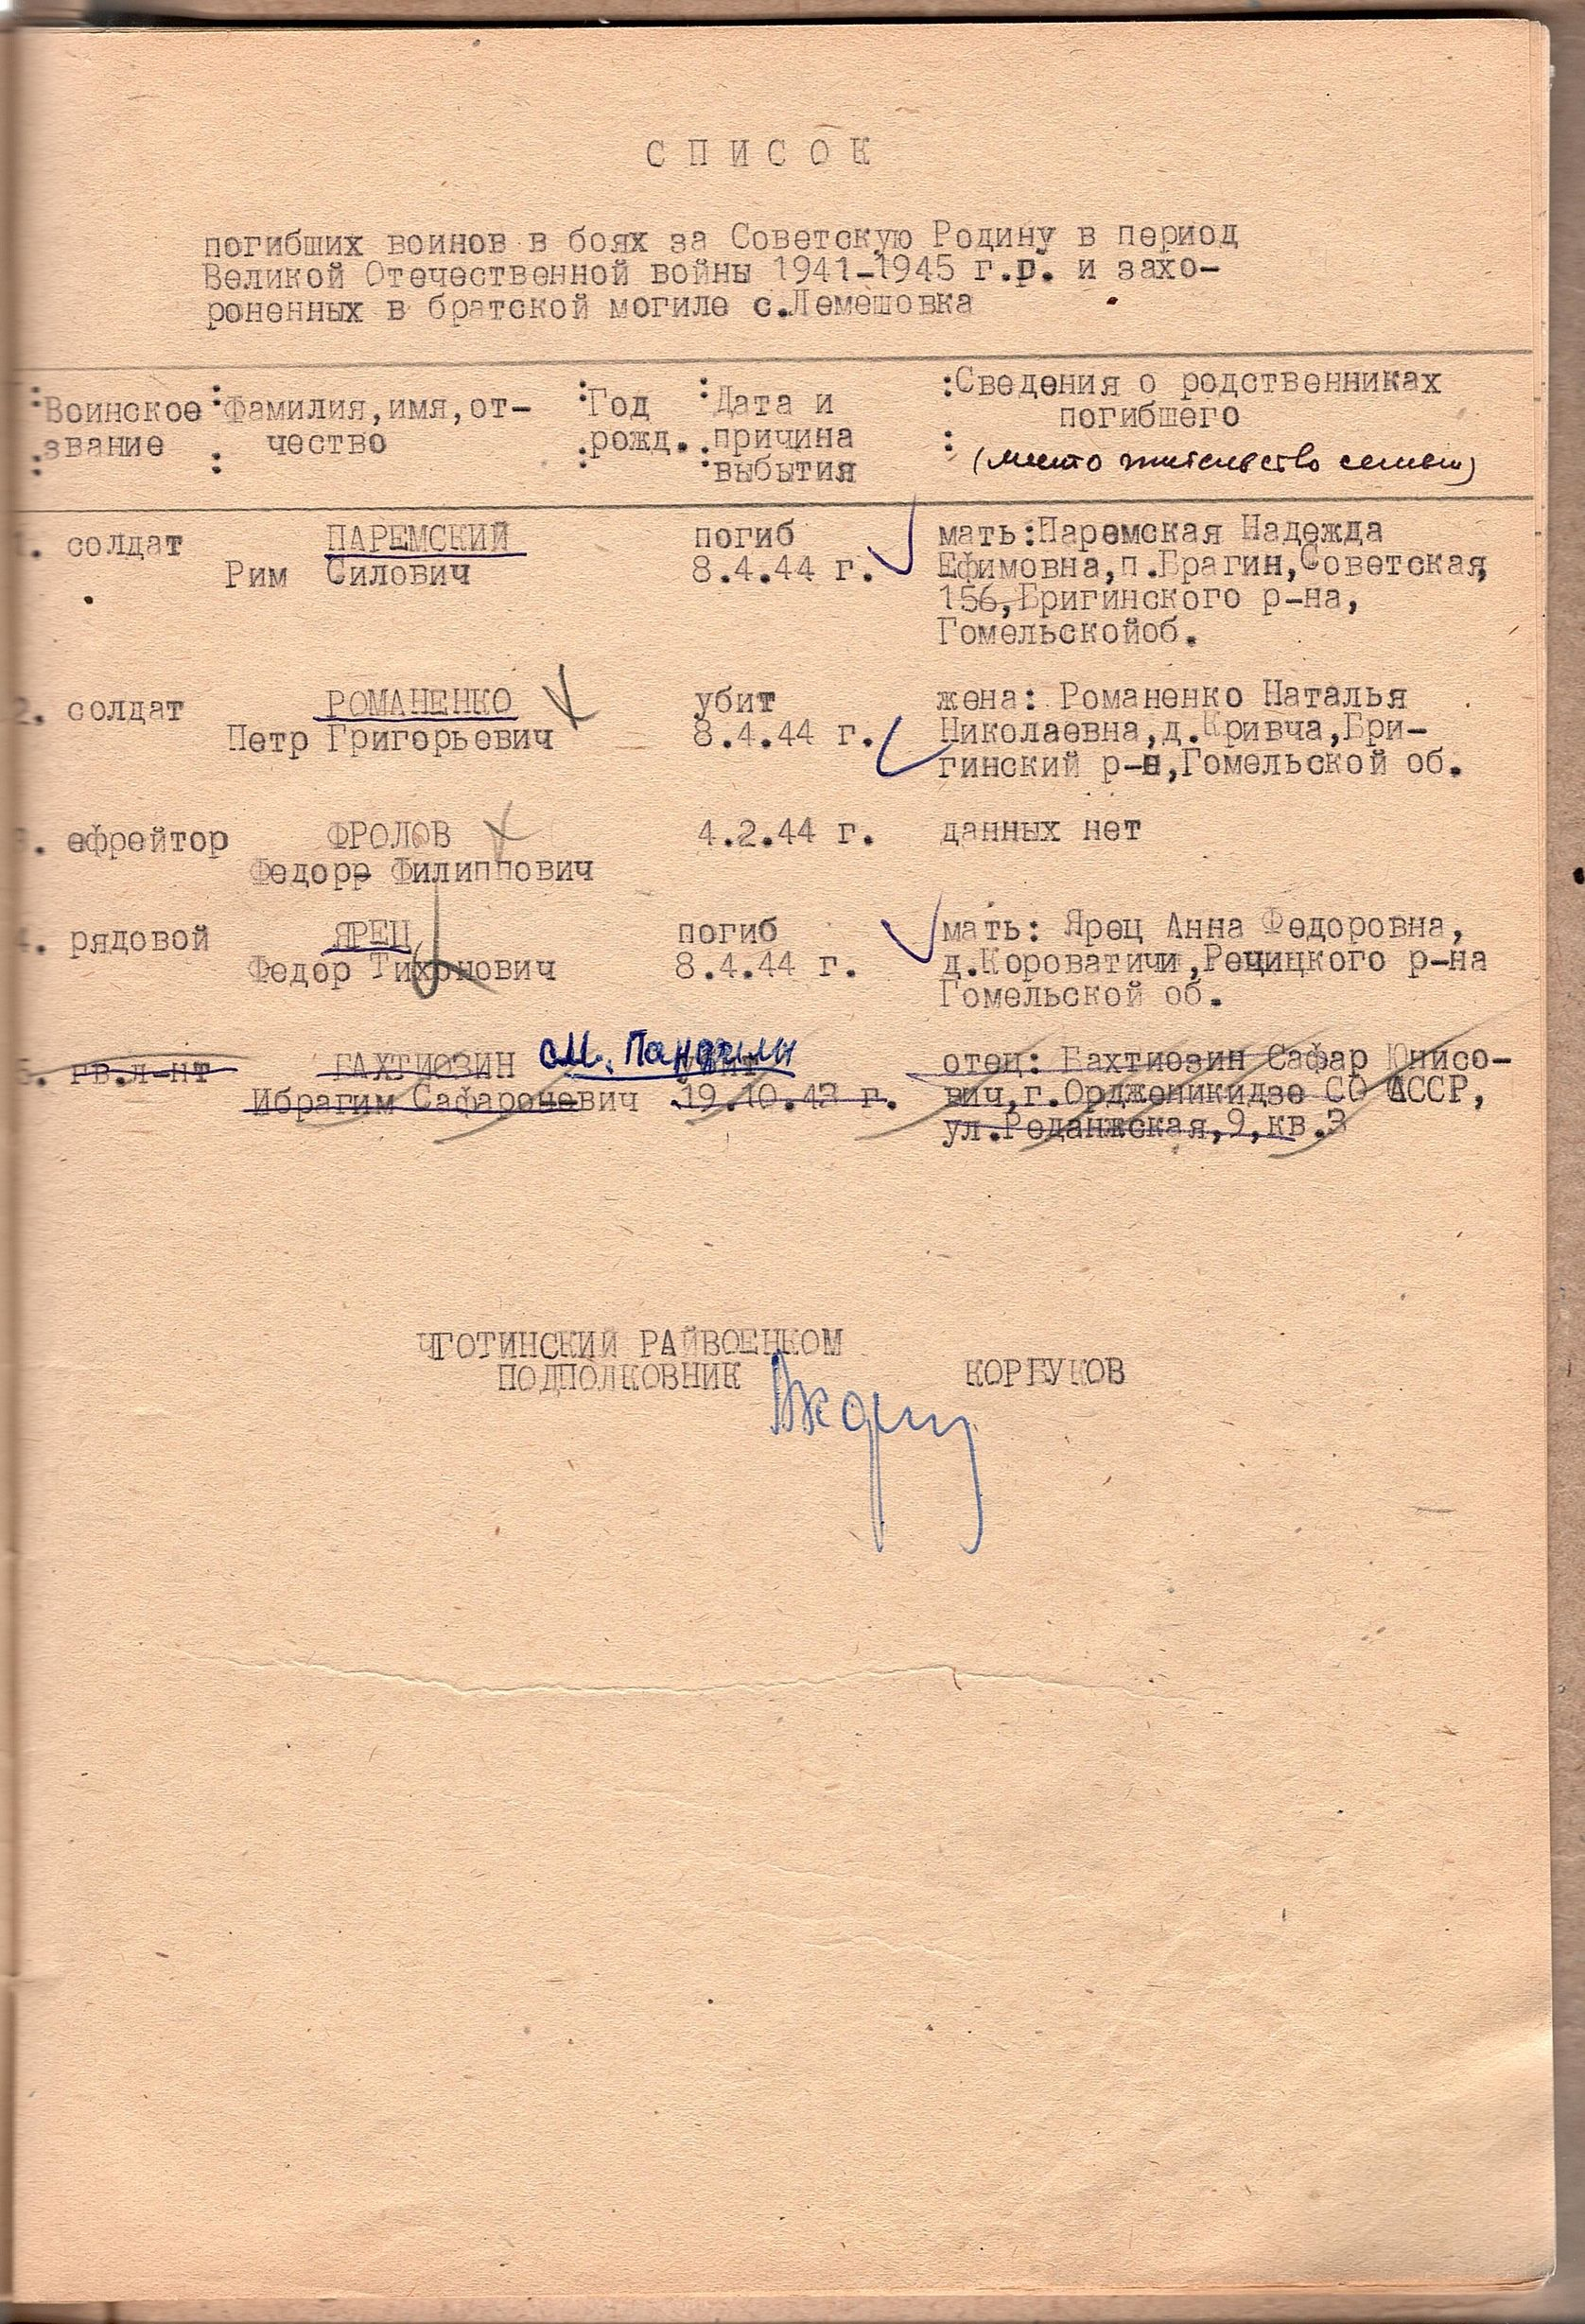 СПИСОК
погибших воинов в боях за Советскую Родину в период
Великой Отечественной войны 1941-1945 г.р. и захо-
роненных в братской могиле с.Лемешовка
:Воинское :Фамилия,имя,от- :Год :Дата и :Сведения о родственниках
:звание : чество :рожд. :причина погибшего
:выбытия : (место жительство семьи)
1. солдат ПАРЕМСКИЙ погиб мать:Паремская Надежда
Рим Силович 8.4.44 г. Ефимовна,п.Брагин,Советская,
156,Бригинского р-на,
Гомельскойоб.
2. солдат РОМАНЕНКО убит жена: Романенко Наталья
Петр Григорьевич 8.4.44 г. Николаевна,д.Кривча,Бри-
гинский р-н,Гомельской об.
3. ефрейтор ФРОЛОВ 4.2.44 г. данных нет
Федорр Филиппович
4. рядовой ЯРЕЦ погиб мать: Ярец Анна Федоровна,
Федор Тихонович 8.4.44 г. д.Короватичи,Речицкого р-на
Гомельской об.
5. гв.л-нт БАХТИОЗИН см. убит отец: Бахтиозин Сафар Юнисо-
Ибрагим Сафароневич 19.10.43 г. вич,г.Орджоникидзе СО АССР,
ул.Роданжская,9,кв.3
ЧГОТИНСКИЙ РАЙВОЕНКОМ
ПОДПОЛКОВНИК КОРБУКОВ